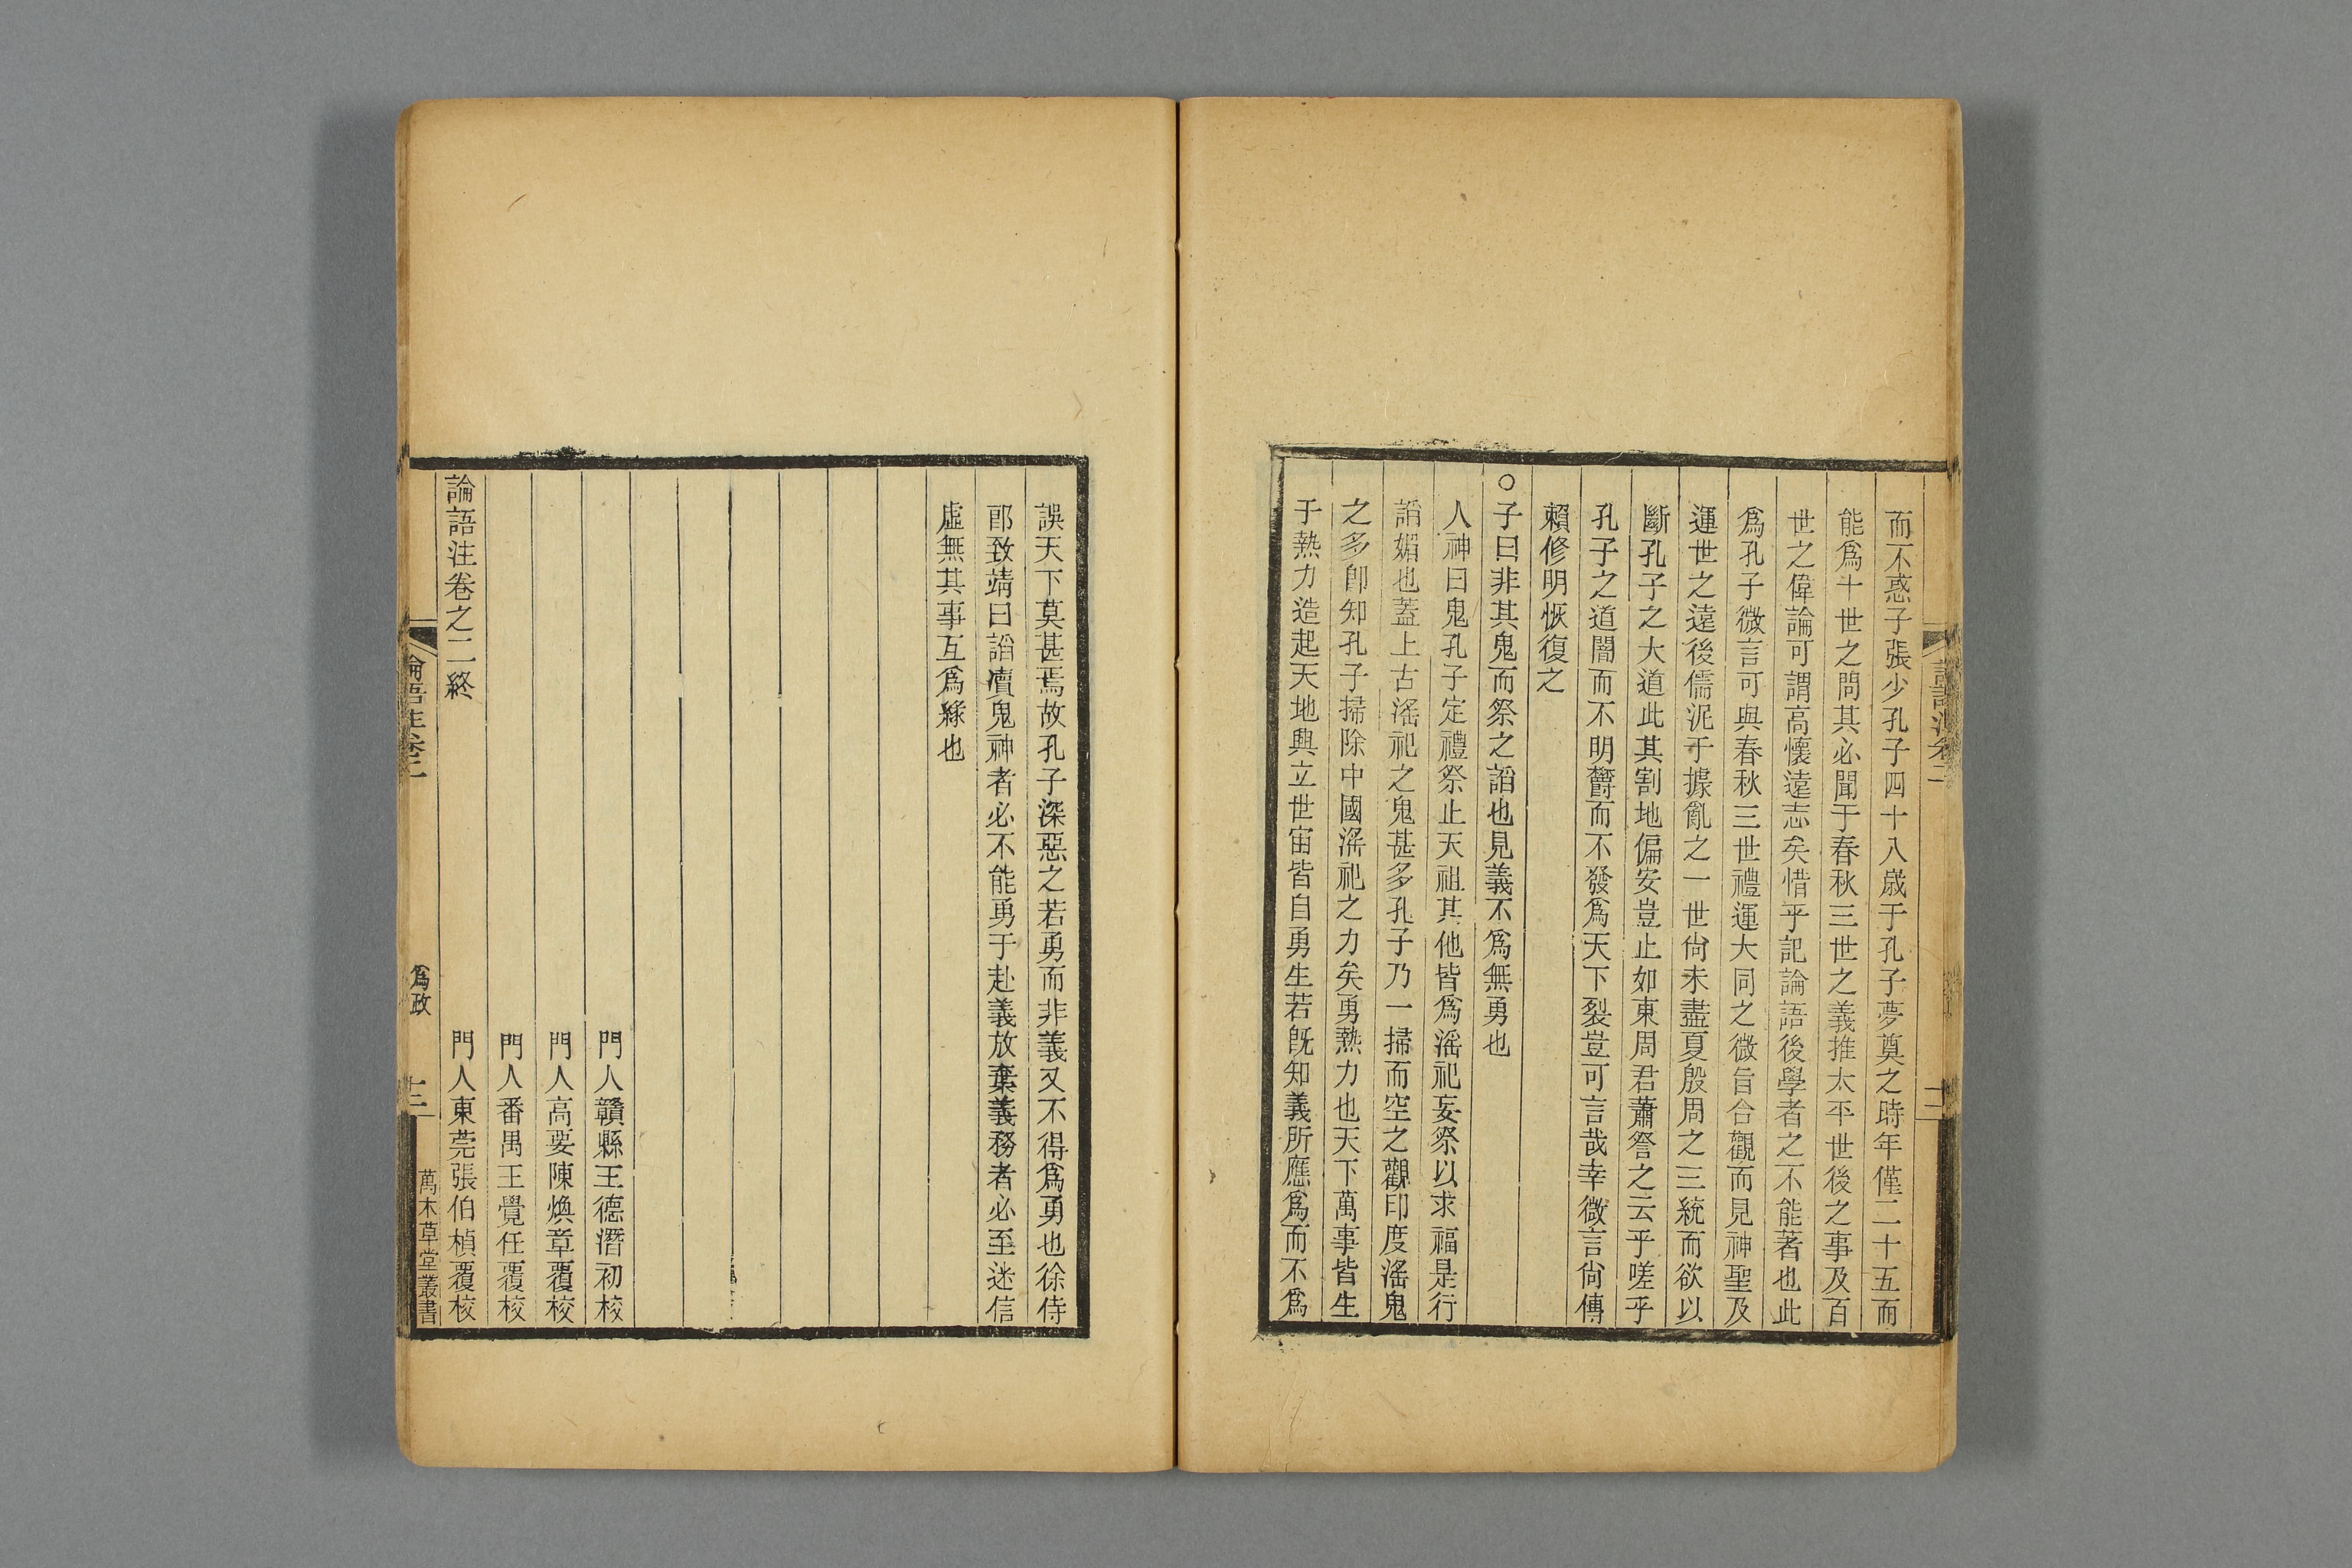 而不惑子張少孔子四十八歲于孔子夢奠之時年僅二十五而
能爲十世之問其必聞于春秋三世之義推太平世後之事及百
世之偉論可謂高懷遠志矣惜乎記論語後學者之不能著也此
爲孔子微言可與春秋三世禮運大同之微旨合觀而見神聖及
運世之遠後儒泥于據亂之一世尙未盡夏殷周之三統而欲以
斷孔子之大道此其割地偏安豈止如東周君蕭詧之云乎嗟乎
孔子之道闇而不明鬱而不發爲天下裂豈可言哉幸微言尙傳
賴修明恢復之
○子曰非其鬼而祭之諂也見義不爲無勇也
人神曰鬼孔子定禮祭止天祖其他皆爲滛祀妄祭以求福是行
諂媚也蓋上古滛祀之鬼甚多孔子乃一掃而空之觀印度滛鬼
之多卽知孔子掃除中國滛祀之力矣勇熱力也天下萬事皆生
于熱力造起天地興立世宙皆自勇生若旣知義所應爲而不爲
誤天下莫甚焉故孔子深惡之若勇而非義又不得爲勇也徐侍
郎致靖曰諂凟鬼神者必不能勇于赴義放棄義務者必至迷信
虛無其事互爲緣也
門人贛縣王德潛初校
門人高要陳煥章覆校
門人番禺王覺任覆校
論語注卷之二終 門人東莞張伯楨覆校
論語注卷二 爲政 十三 萬木草堂叢書